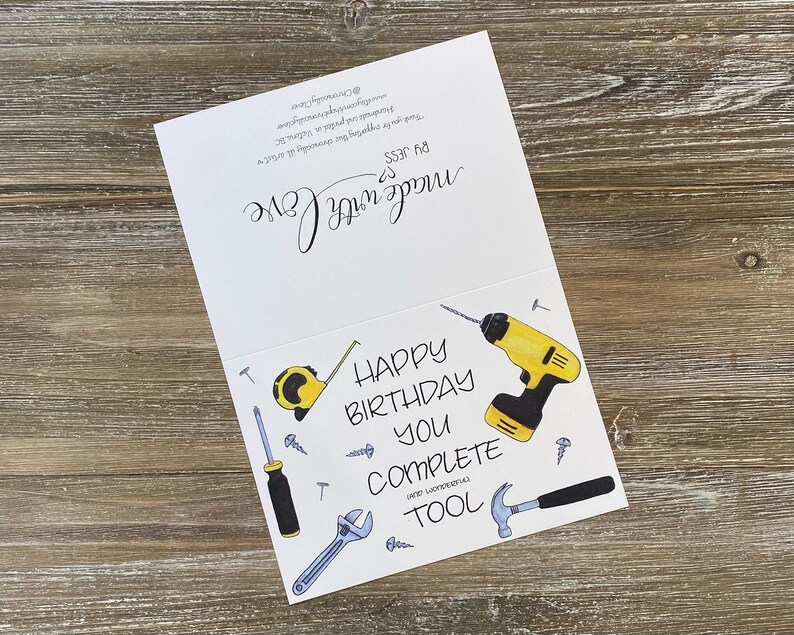 HAPPY
BIRTHDAY
YOU
COMPLETE
(AND WONDERFUL)
TOOL
made with love
BY JESS
Thank you for supporting this chronically ill artist
Handmade and printed in Victoria, BC
www.etsy.com/shop/chronicallyclover
@ChronicallyClover